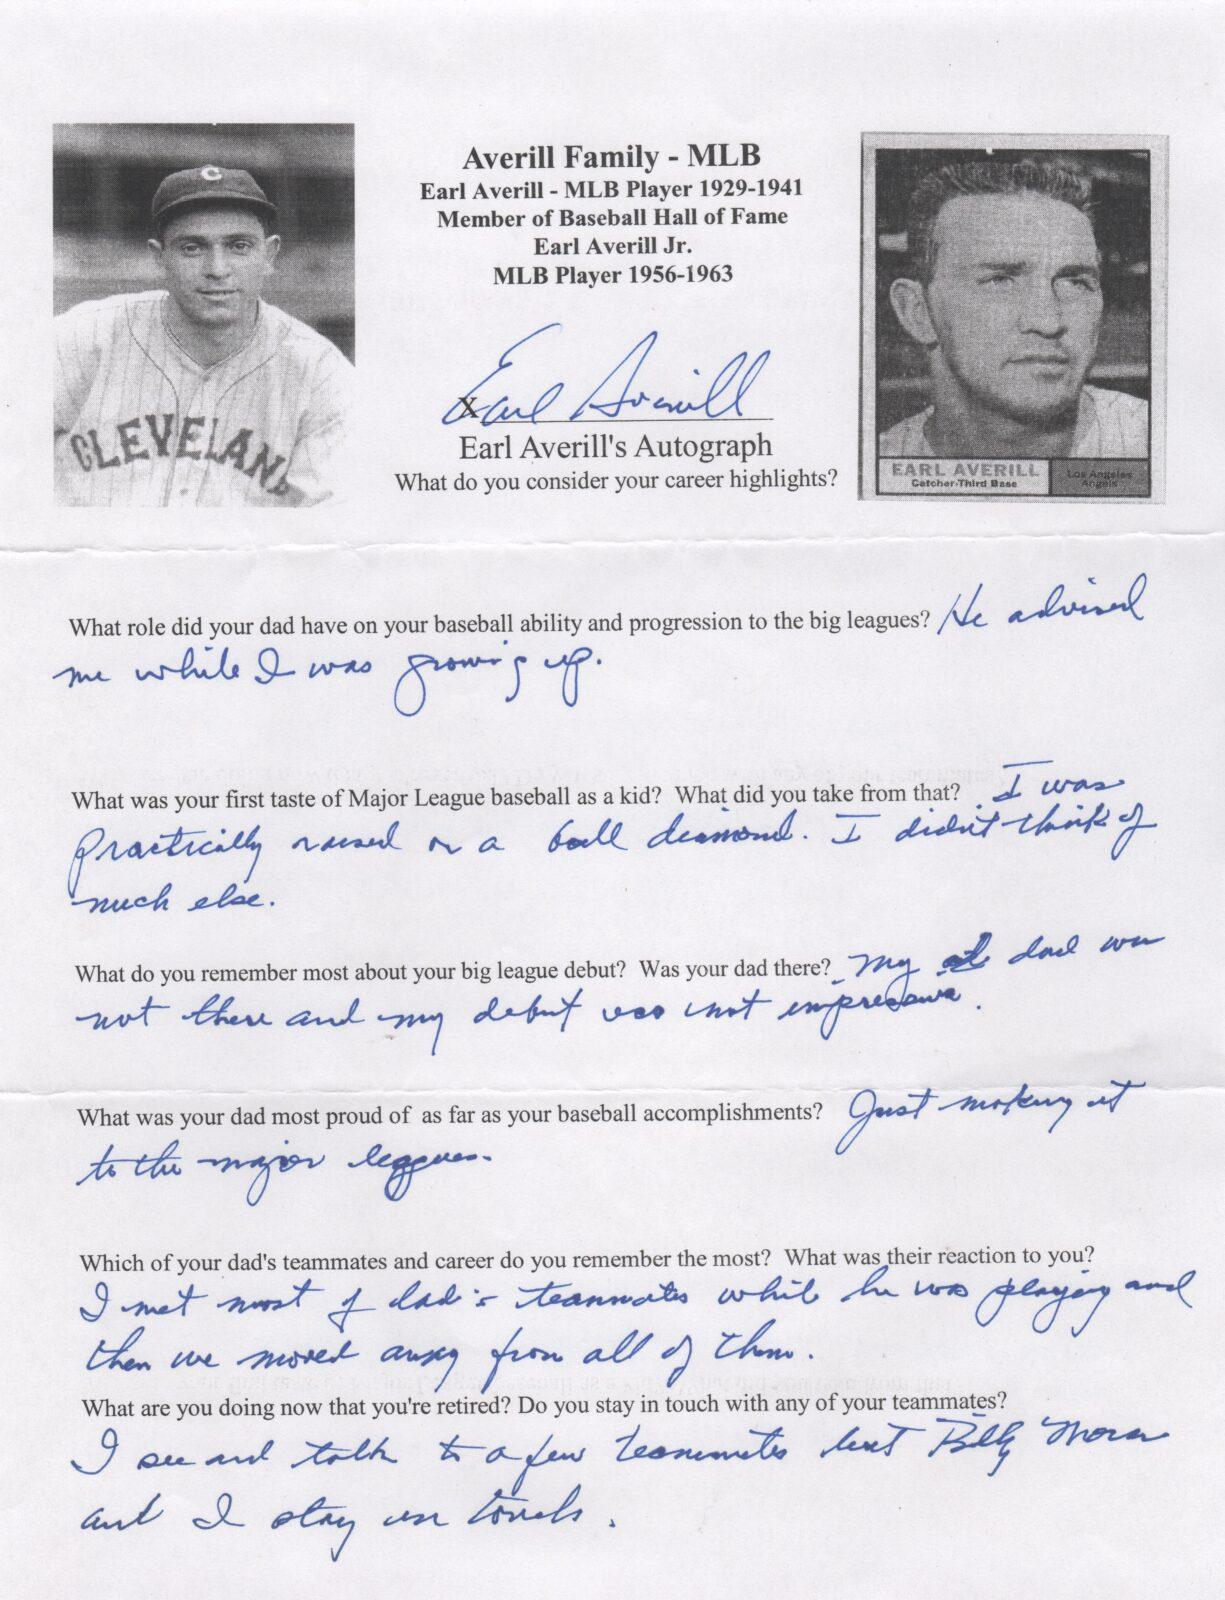 Averill Family - MLB
Earl Averill - MLB Player 1929-1941
Member of Baseball Hall of Fame
Earl Averill Jr.
MLB Player 1956-1963
C
CLEVELAN
EARL AVERILL
Catcher-Third Base
Los Angeles
Angels
X
Earl Averill
Earl Averill's Autograph
What do you consider your career highlights?
What role did your dad have on your baseball ability and progression to the big leagues? He advised
me while I was growing up.
What was your first taste of Major League baseball as a kid? What did you take from that? I was
practically raised on a ball diamond. I didn't think of
much else.
What do you remember most about your big league debut? Was your dad there? My dad was
not there and my debut was not impressive.
What was your dad most proud of as far as your baseball accomplishments? Just making it
to the major leagues.
Which of your dad's teammates and career do you remember the most? What was their reaction to you?
I met most of dad's teammates while he was playing and
then we moved away from all of them.
What are you doing now that you're retired? Do you stay in touch with any of your teammates?
I see and talk to a few teammates but Billy Moran
and I stay in touch.